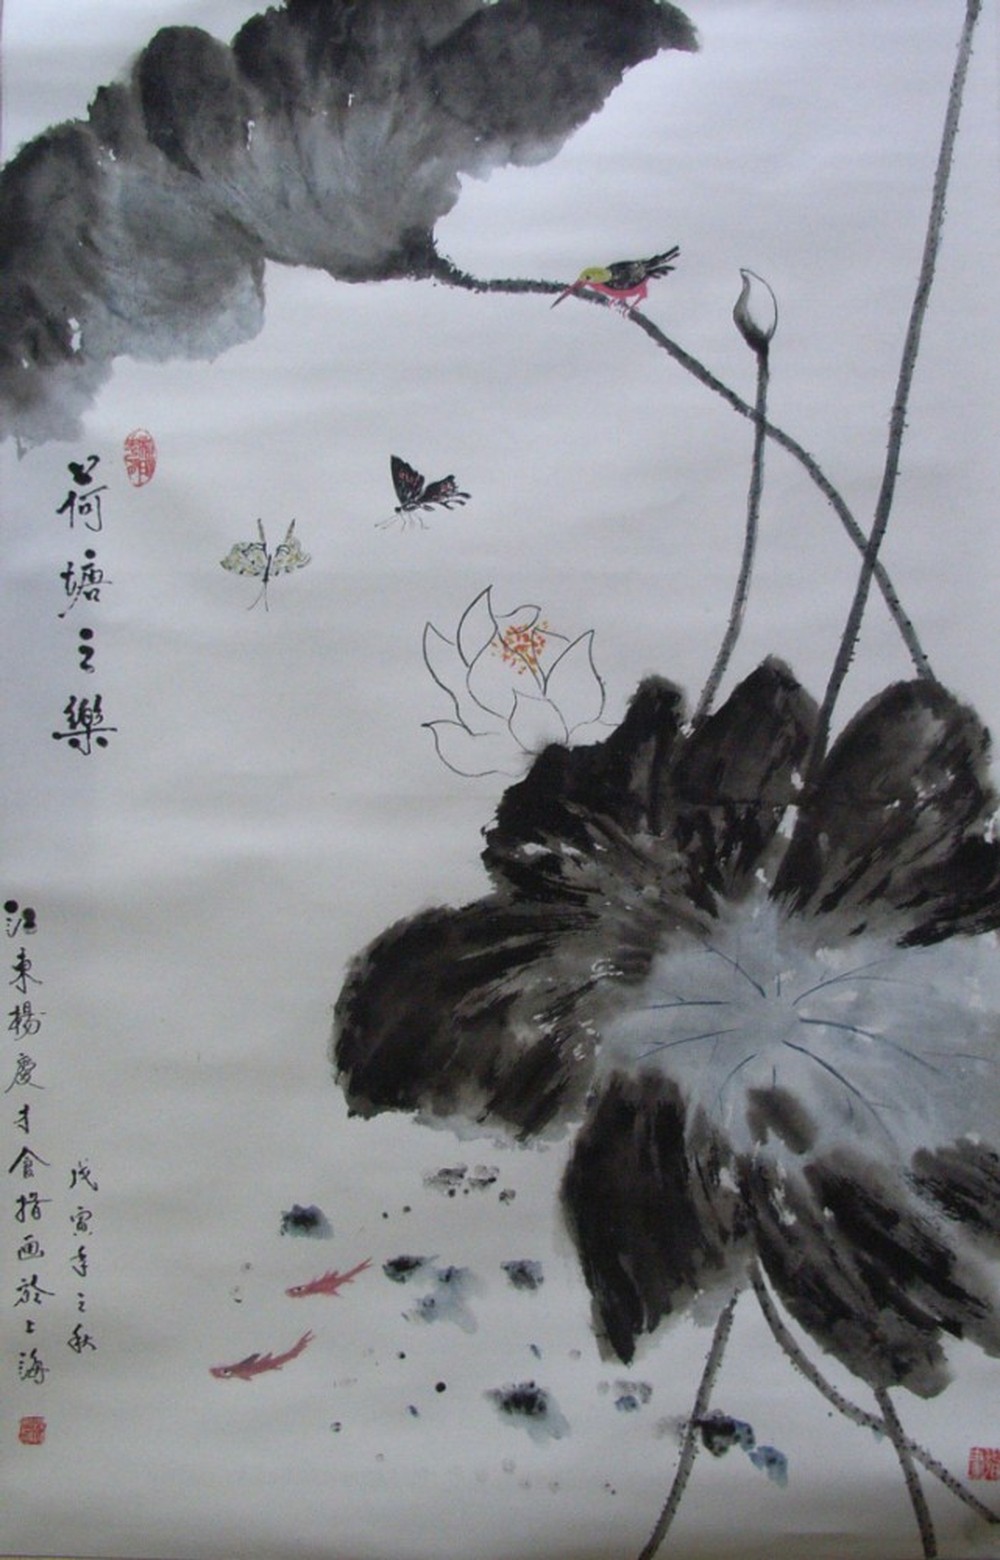 荷塘之樂
江東楊慶才食指画於上海
戊寅年之秋